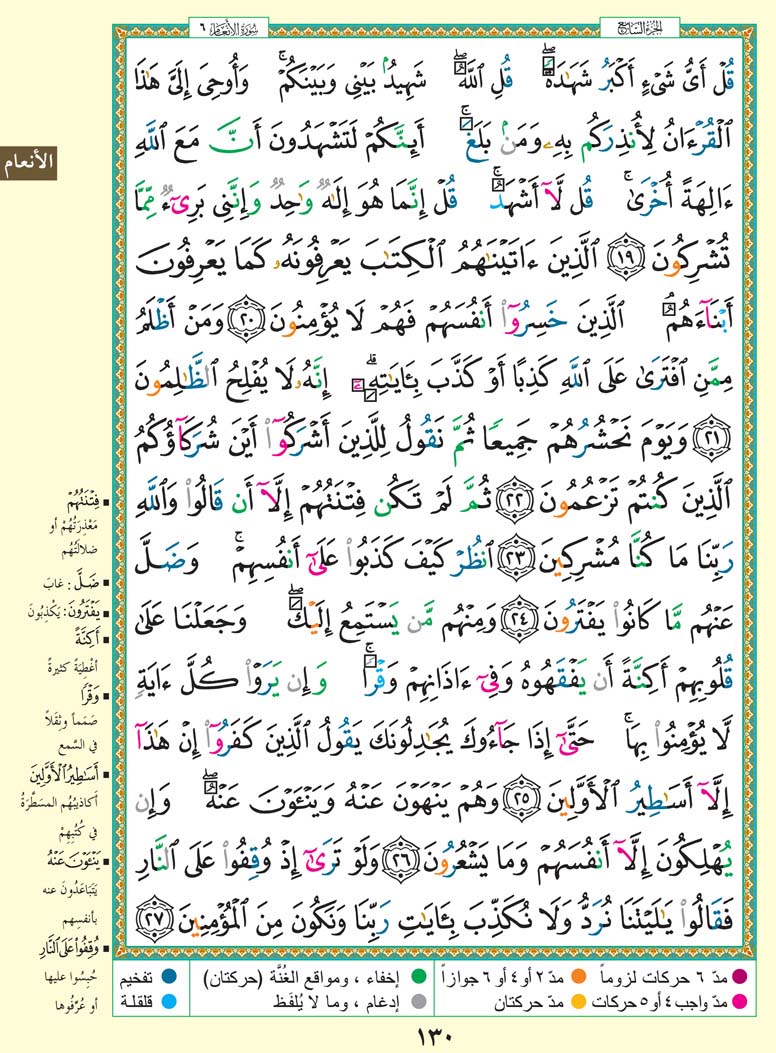 سورة الأنعام ٦
الجزء السابع
قُلْ أَىُّ شَىْءٍ أَكْبَرُ شَهَٰدَةً ۖ قُلِ ٱللَّهُ ۖ شَهِيدٌۢ بَيْنِى وَبَيْنَكُمْ ۚ وَأُوحِىَ إِلَىَّ هَٰذَا
ٱلْقُرْءَانُ لِأُنذِرَكُم بِهِۦ وَمَنۢ بَلَغَ ۚ أَئِنَّكُمْ لَتَشْهَدُونَ أَنَّ مَعَ ٱللَّهِ
ءَالِهَةً أُخْرَىٰ ۚ قُل لَّآ أَشْهَدُ ۚ قُلْ إِنَّمَا هُوَ إِلَٰهٌ وَٰحِدٌ وَإِنَّنِى بَرِىٓءٌ مِّمَّا
تُشْرِكُونَ ١٩ ٱلَّذِينَ ءَاتَيْنَٰهُمُ ٱلْكِتَٰبَ يَعْرِفُونَهُۥ كَمَا يَعْرِفُونَ
أَبْنَآءَهُمُ ۘ ٱلَّذِينَ خَسِرُوٓا۟ أَنفُسَهُمْ فَهُمْ لَا يُؤْمِنُونَ ٢٠ وَمَنْ أَظْلَمُ
مِمَّنِ ٱفْتَرَىٰ عَلَى ٱللَّهِ كَذِبًا أَوْ كَذَّبَ بِـَٔايَٰتِهِۦٓ ۗ إِنَّهُۥ لَا يُفْلِحُ ٱلظَّٰلِمُونَ
٢١ وَيَوْمَ نَحْشُرُهُمْ جَمِيعًا ثُمَّ نَقُولُ لِلَّذِينَ أَشْرَكُوٓا۟ أَيْنَ شُرَكَآؤُكُمُ
ٱلَّذِينَ كُنتُمْ تَزْعُمُونَ ٢٢ ثُمَّ لَمْ تَكُن فِتْنَتُهُمْ إِلَّآ أَن قَالُوا۟ وَٱللَّهِ
رَبِّنَا مَا كُنَّا مُشْرِكِينَ ٢٣ ٱنظُرْ كَيْفَ كَذَبُوا۟ عَلَىٰٓ أَنفُسِهِمْ ۚ وَضَلَّ
عَنْهُم مَّا كَانُوا۟ يَفْتَرُونَ ٢٤ وَمِنْهُم مَّن يَسْتَمِعُ إِلَيْكَ ۖ وَجَعَلْنَا عَلَىٰ
قُلُوبِهِمْ أَكِنَّةً أَن يَفْقَهُوهُ وَفِىٓ ءَاذَانِهِمْ وَقْرًا ۚ وَإِن يَرَوْا۟ كُلَّ ءَايَةٍ
لَّا يُؤْمِنُوا۟ بِهَا ۚ حَتَّىٰٓ إِذَا جَآءُوكَ يُجَٰدِلُونَكَ يَقُولُ ٱلَّذِينَ كَفَرُوٓا۟ إِنْ هَٰذَآ
إِلَّآ أَسَٰطِيرُ ٱلْأَوَّلِينَ ٢٥ وَهُمْ يَنْهَوْنَ عَنْهُ وَيَنْـَٔوْنَ عَنْهُ ۖ وَإِن
يُهْلِكُونَ إِلَّآ أَنفُسَهُمْ وَمَا يَشْعُرُونَ ٢٦ وَلَوْ تَرَىٰٓ إِذْ وُقِفُوا۟ عَلَى ٱلنَّارِ
فَقَالُوا۟ يَٰلَيْتَنَا نُرَدُّ وَلَا نُكَذِّبَ بِـَٔايَٰتِ رَبِّنَا وَنَكُونَ مِنَ ٱلْمُؤْمِنِينَ ٢٧
الأنعام
▪ فِتْنَتُهُمْ
مَعْذِرَتُهُمْ أو
ضلالَتُهُم
▪ ضَلَّ : غابَ
▪ يَفْتَرُونَ: يَكْذِبُونَ
▪ أَكِنَّةً
أغْطِيَةً كثيرةً
▪ وَقْرًا
صَمَماً وثِقَلاً
في السَّمع
▪ أَسَٰطِيرُ ٱلْأَوَّلِينَ
أكاذيبُهم المسَطَّرَةُ
في كُتُبِهِمْ
▪ يَنْـَٔوْنَ عَنْهُ
يَتَبَاعَدُونَ عنه
بأنفسِهم
▪ وُقِفُوا۟ عَلَى ٱلنَّارِ
حُبِسُوا عليها
أو عُرِّفُوها
مدّ ٦ حركات لزوماً
مدّ ٢ أو ٤ أو ٦ جوازاً
إخفاء ، ومواقع الغُنَّة (حركتان)
تفخيم
مدّ واجب ٤ أو ٥ حركات
مدّ حركتان
إدغام ، وما لا يُلفَظ
قلقلة
١٣٠